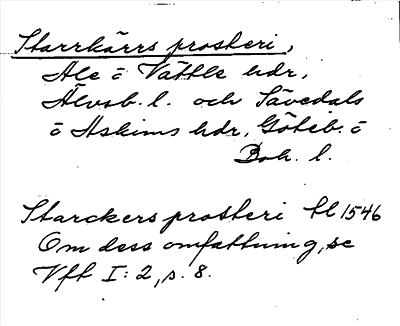 Starrkärrs prosteri,
Ale o Vättle hdr,
Älvsb. l. och Sävedals
o Askims hdr, Göteb. o
Boh. l.
Starckers prosteri hl 1546
Om dess omfattning, se
Vft I: 2, s. 8.